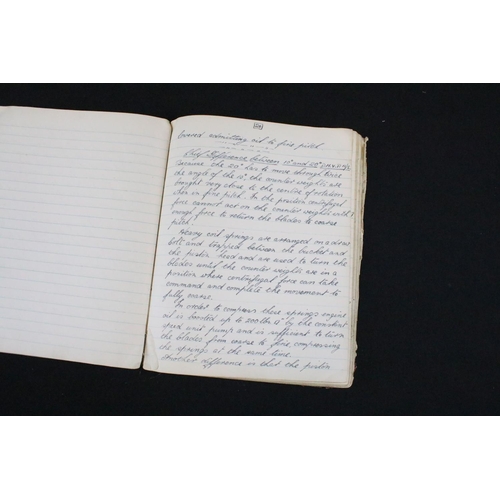 lowered admitting oil to fine pitch
Chief Difference between 10° and 20°
Because the 20° has to move through twice
the angle of the 10°, the counter weights are
brought very close to the centre of rotation
when in fine pitch. In the position centrifugal
force cannot act on the counter weights with
enough force to return the blades to coarse
pitch.
Heavy coil springs are arranged on a drive
bolt and trapped between the bracket and
the piston head and are used to turn the
blades until the counter weights are in a
position where centrifugal force can take
command and complete the movement to
fully coarse.
In order to compress these springs engine
oil is boosted up to 200 lbs by the constant
speed unit pump and is sufficient to turn
the blades from coarse to fine, compressing
the springs at the same time.
Another difference is that the piston